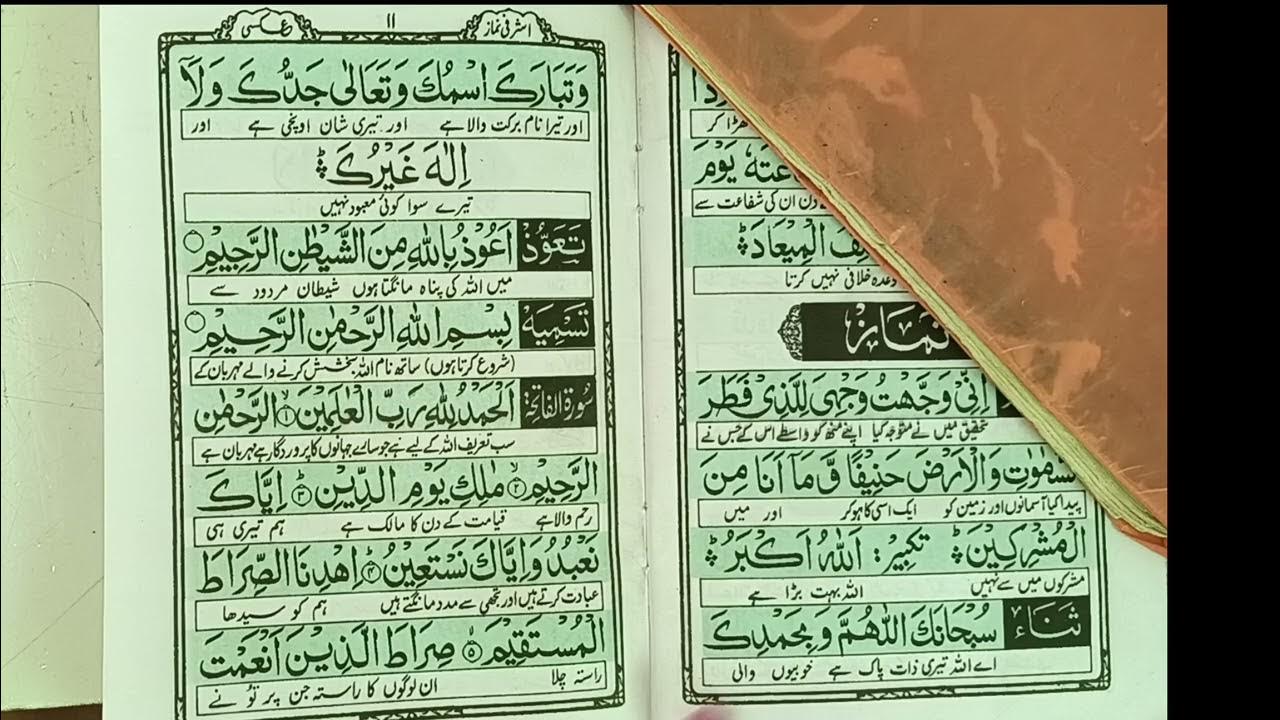 وْدَا
ھڑا کر
عَتَهٗ يَوْمَ
دن ان کی شفاعت سے
الْمِيْعَادَ
وعدہ خلافی نہیں کرتا
نماز
اِنِّىْ وَجَّهْتُ وَجْهِىَ لِلَّذِىْ فَطَرَ
تحقیق میں نے متوجہ کیا اپنے منھ کو واسطے اس کے جس نے
السَّمٰوٰتِ وَالْاَرْضَ حَنِيْفًا وَّمَآ اَنَا مِنَ
پیدا کیا آسمانوں اور زمین کو ایک اسی کا ہو کر اور میں
الْمُشْرِكِيْنَ تکبیر: اَللّٰهُ اَكْبَرُ
مشرکوں میں سے نہیں اللہ بہت بڑا ہے
ثناء سُبْحَانَكَ اللّٰهُمَّ وَبِحَمْدِكَ
اے اللہ تیری ذات پاک ہے خوبیوں والی
اشرفی نماز ۱۱ عکسی
وَتَبَارَكَ اسْمُكَ وَتَعَالٰى جَدُّكَ وَلَآ
اور تیرا نام برکت والا ہے اور تیری شان اونچی ہے اور
اِلٰهَ غَيْرُكَ
تیرے سوا کوئی معبود نہیں
تَعَوُّذ اَعُوْذُ بِاللّٰهِ مِنَ الشَّيْطٰنِ الرَّجِيْمِ
میں اللہ کی پناہ مانگتا ہوں شیطان مردود سے
تسمیہ بِسْمِ اللّٰهِ الرَّحْمٰنِ الرَّحِيْمِ
(شروع کرتا ہوں) ساتھ نام اللہ بخشش کرنے والے مہربان کے
سورۃ الفاتحۃ: اَلْحَمْدُ لِلّٰهِ رَبِّ الْعٰلَمِيْنَ ۱ الرَّحْمٰنِ
سب تعریف اللہ کے لیے ہے جو سارے جہانوں کا پروردگار ہے مہربان ہے
الرَّحِيْمِ ۲ مٰلِكِ يَوْمِ الدِّيْنِ ۳ اِيَّاكَ
رحم والا ہے قیامت کے دن کا مالک ہے ہم تیری ہی
نَعْبُدُ وَاِيَّاكَ نَسْتَعِيْنُ ۴ اِهْدِنَا الصِّرَاطَ
عبادت کرتے ہیں اور تجھی سے مدد مانگتے ہیں ہم کو سیدھا
الْمُسْتَقِيْمَ ۵ صِرَاطَ الَّذِيْنَ اَنْعَمْتَ
راستہ چلا ان لوگوں کا راستہ جن پر تو نے